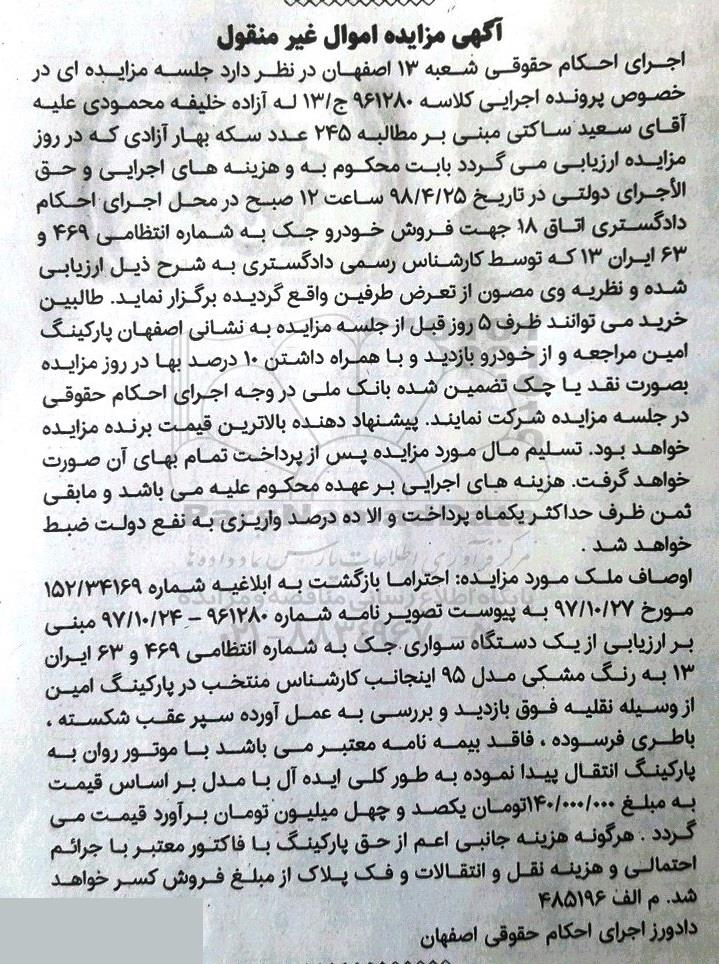 آگهی مزایده اموال غیر منقول
اجرای احکام حقوقی شعبه ۱۳ اصفهان در نظر دارد جلسه مزایده ای در
خصوص پرونده اجرایی کلاسه ۹۶۱۲۸۰ ج/۱۳ له آزاده خلیفه محمودی علیه
آقای سعید ساکتی مبنی بر مطالبه ۲۴۵ عدد سکه بهار آزادی که در روز
مزایده ارزیابی می گردد بابت محکوم به و هزینه های اجرایی و حق
الأجرای دولتی در تاریخ ۹۸/۴/۲۵ ساعت ۱۲ صبح در محل اجرای احکام
دادگستری اتاق ۱۸ جهت فروش خودرو جک به شماره انتظامی ۴۶۹ و
۶۳ ایران ۱۳ که توسط کارشناس رسمی دادگستری به شرح ذیل ارزیابی
شده و نظریه وی مصون از تعرض طرفین واقع گردیده برگزار نماید. طالبین
خرید می توانند ظرف ۵ روز قبل از جلسه مزایده به نشانی اصفهان پارکینگ
امین مراجعه و از خودرو بازدید و با همراه داشتن ۱۰ درصد بها در روز مزایده
بصورت نقد یا چک تضمین شده بانک ملی در وجه اجرای احکام حقوقی
در جلسه مزایده شرکت نمایند. پیشنهاد دهنده بالاترین قیمت برنده مزایده
خواهد بود. تسلیم مال مورد مزایده پس از پرداخت تمام بهای آن صورت
خواهد گرفت. هزینه های اجرایی بر عهده محکوم علیه می باشد و مابقی
ثمن ظرف حداکثر یکماه پرداخت و الا ده درصد واریزی به نفع دولت ضبط
خواهد شد .
اوصاف ملک مورد مزایده: احتراما بازگشت به ابلاغیه شماره ۱۵۲/۳۴۱۶۹
مورخ ۹۷/۱۰/۲۷ به پیوست تصویر نامه شماره ۹۶۱۲۸۰ – ۹۷/۱۰/۲۴ مبنی
بر ارزیابی از یک دستگاه سواری جک به شماره انتظامی ۴۶۹ و ۶۳ ایران
۱۳ به رنگ مشکی مدل ۹۵ اینجانب کارشناس منتخب در پارکینگ امین
از وسیله نقلیه فوق بازدید و بررسی به عمل آورده سپر عقب شکسته ،
باطری فرسوده ، فاقد بیمه نامه معتبر می باشد با موتور روان به
پارکینگ انتقال پیدا نموده به طور کلی ایده آل با مدل بر اساس قیمت
به مبلغ ۱۴۰/۰۰۰/۰۰۰تومان یکصد و چهل میلیون تومان برآورد قیمت می
گردد . هرگونه هزینه جانبی اعم از حق پارکینگ با فاکتور معتبر با جرائم
احتمالی و هزینه نقل و انتقالات و فک پلاک از مبلغ فروش کسر خواهد
شد. م الف ۴۸۵۱۹۶
دادورز اجرای احکام حقوقی اصفهان